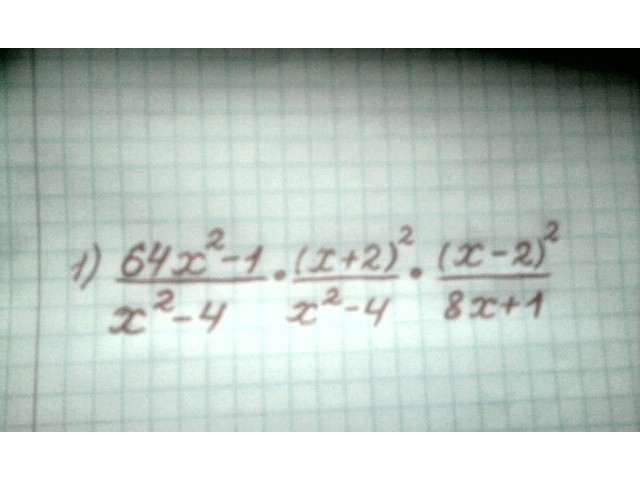 1) \frac{64x^2-1}{x^2-4} \cdot \frac{(x+2)^2}{x^2-4} \cdot \frac{(x-2)^2}{8x+1}